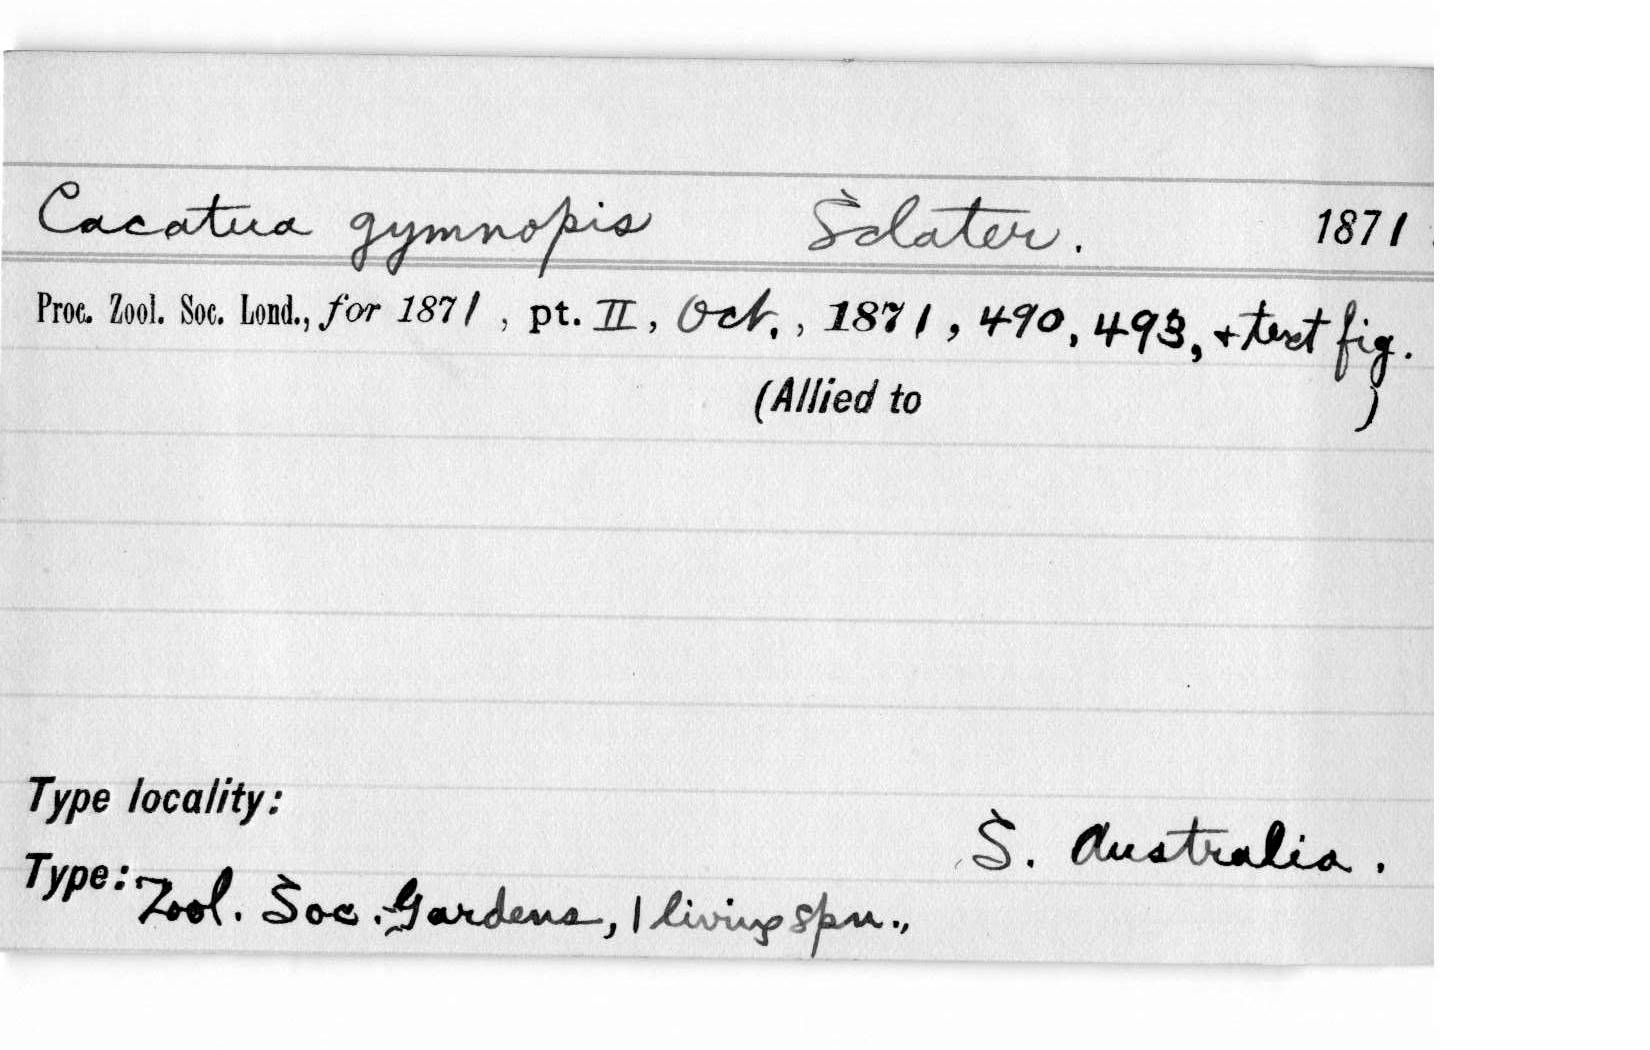 Cacatua gymnopis Sclater. 1871
Proc. Zool. Soc. Lond., for 1871, pt. II, Oct., 1871, 490, 493, + text fig.
(Allied to )
Type locality:
S. Australia.
Type: Zool. Soc. Gardens, 1 living spn.,